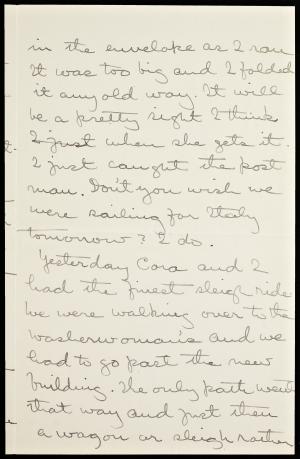 in the envelope as I ran
It was too big and I folded
it any old way. It will
be a pretty sight I think
I just when she gets it.
I just caught the post
man. Don't you wish we
were sailing for Italy
tomorrow? I do.
Yesterday Cora and I
had the finest sleigh ride
We were walking over to the
washerwoman's and we
had to go past the new
building. The only path went
that way and just then
a wagon or sleigh rather